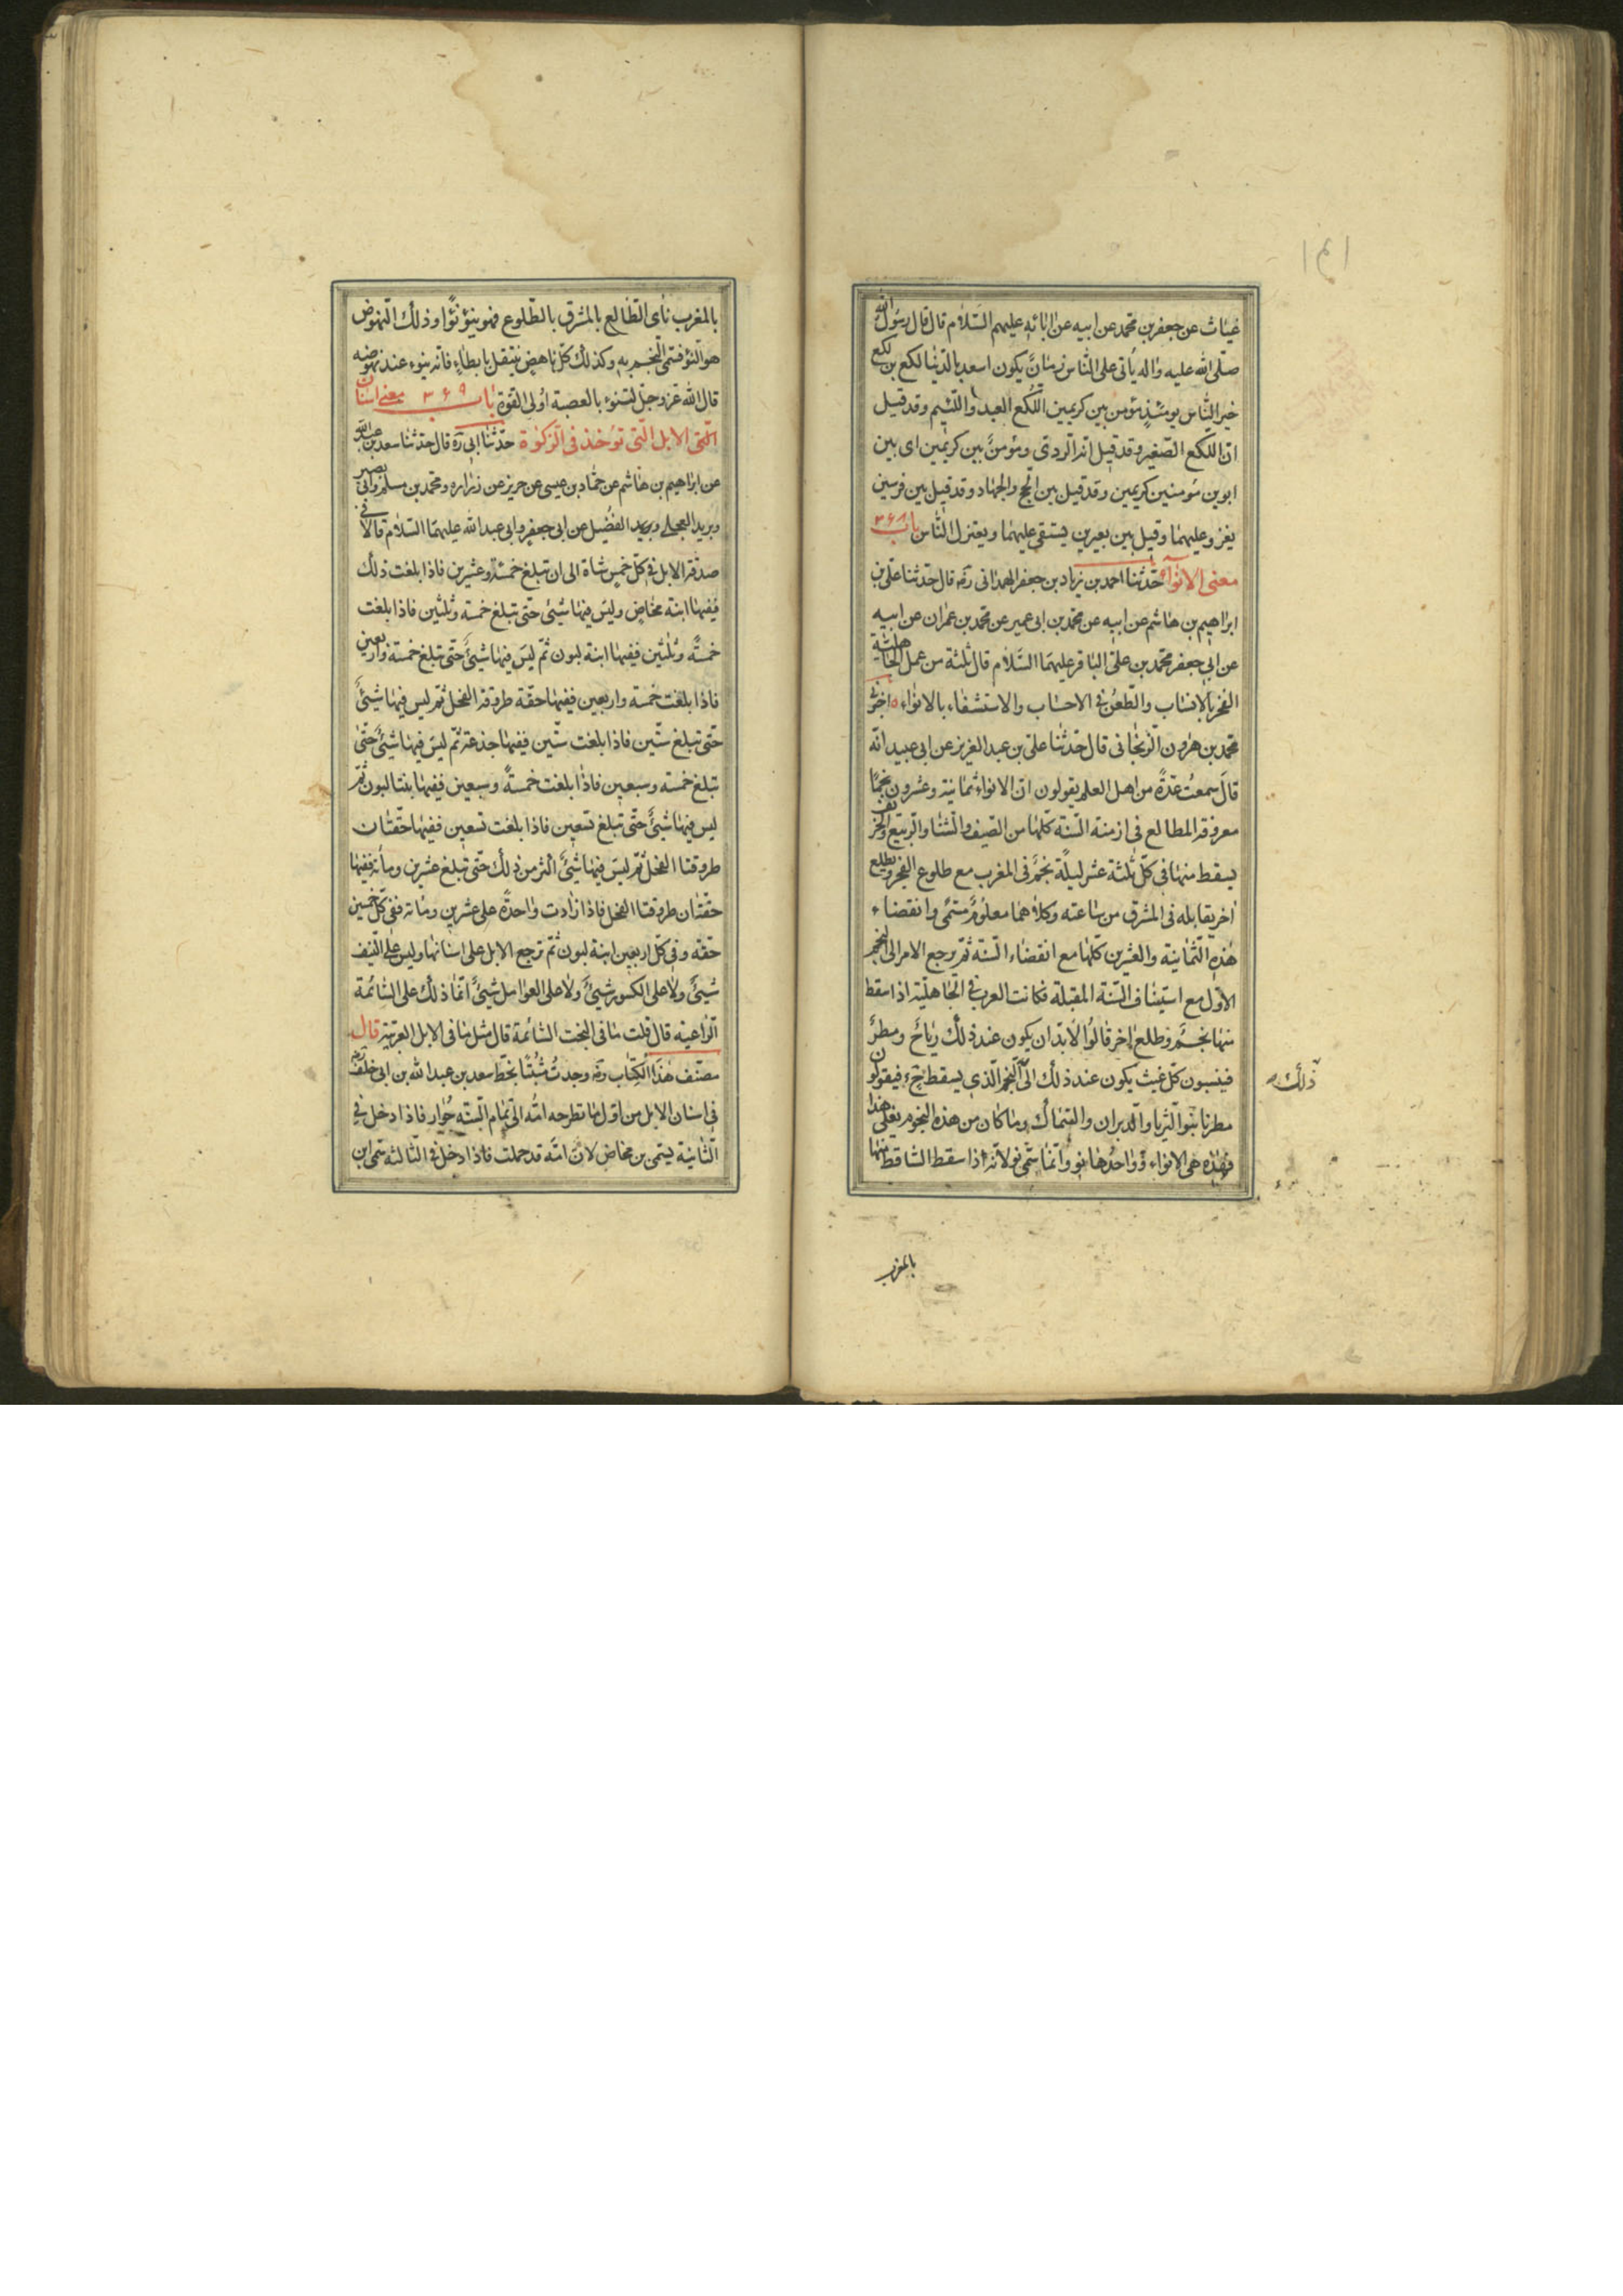 غياث عن جعفر بن محمد عن ابيه عن ابائه عليهم السلام قال قال رسول الله
صلى الله عليه واله ياتى على الناس زمان يكون اسعد بالدنيا لكع بن لكع
خير الناس يومئذ مؤمن بين كريمين اللكع العبد واللئيم وقد قيل
ان اللكع الصغير وقد قيل انه الردى ومؤمن بين كريمين اى بين
ابوين مؤمنين كريمين وقد قيل بين الحج والجهاد وقد قيل بين فرسين
يغزو عليهما وقيل بين بعيرين يستقى عليهما ويعتزل الناس باب ٣٦٨
معنى الانواء حدثنا احمد بن زياد بن جعفر الهمدانى ره قال حدثنا على بن
ابراهيم بن هاشم عن ابيه عن محمد بن ابى عمير عن محمد بن عمران عن ابيه
عن ابى جعفر محمد بن على الباقر عليهما السلام قال ثلثة من عمل الجاهلية
الفخر بالانساب والطعن فى الاحساب والاستسقاء بالانواء اخبرنى
محمد بن هرون الزنجانى قال حدثنا على بن عبد العزيز عن ابى عبيد انه
قال سمعت عدة من اهل العلم يقولون ان الانواء ثمانية وعشرون نجما
معروفة المطالع فى ازمنة السنة كلها من الصيف والشتا والربيع والخريف
يسقط منها فى كل ثلثة عشر ليلة نجم فى المغرب مع طلوع الفجر ويطلع
اخر يقابله فى المشرق من ساعته وكلاهما معلوم مسمى وانقضاء
هذه الثمانية والعشرين كلها مع انقضاء السنة ثم يرجع الامر الى النجم
الاول مع استيناف السنة المقبلة فكانت العرب فى الجاهلية اذا سقط
منها نجم وطلع اخر قالوا لا بد ان يكون عند ذلك رياح ومطر
فينسبون كل غيث يكون عند ذلك الى النجم الذى يسقط ح فيقولون
ذلك
مطرنا بنوا الثريا والدبران والسماك وما كان من هذه النجوم فعلى هذا
فهذه هى الانواء وواحدها نو وانما سمى نو لانه اذا سقط الساقط منها
بالمغرب
بالمغرب ناى الطالع بالمشرق بالطلوع فهو ينوء نؤا وذلك النهوض
هو النؤ فسمى النجم به وكذلك كل ناهض ينتقل بابطاء فانه ينوء عند نهوضه
قال الله عز وجل لتنوء بالعصبة اولى القوة باب ٣٦٩ معنى اسنان
الابل التى تؤخذ فى الزكوة حدثنا ابى ره قال حدثنا سعد بن عبد الله
عن ابراهيم بن هاشم عن حماد بن عيسى عن حريز عن زراره ومحمد بن مسلم وابى بصير
وبريد العجلى والفضيل عن ابى جعفر وابى عبد الله عليهما السلام قالا فى
صدقة الابل فى كل خمس شاة الى ان تبلغ خمسة وعشرين فاذا بلغت ذلك
ففيها ابنة مخاض وليس فيها شيئ حتى تبلغ خمسة وثلثين فاذا بلغت
خمسة وثلثين ففيها ابنة لبون ثم ليس فيها شيئ حتى تبلغ خمسة واربعين
فاذا بلغت خمسة واربعين ففيها حقة طروقة الفحل ثم ليس فيها شيئ
حتى تبلغ ستين فاذا بلغت ستين ففيها جذعة ثم ليس فيها شيئ حتى
تبلغ خمسة وسبعين فاذا بلغت خمسة وسبعين ففيها بنتا لبون ثم
ليس فيها شيئ حتى تبلغ تسعين فاذا بلغت تسعين ففيها حقتان
طروقتا الفحل ثم ليس فيها شيئ اكثر من ذلك حتى تبلغ عشرين ومائة ففيها
حقتان طروقتا الفحل فاذا زادت واحدة على عشرين ومائة ففى كل خمسين
حقة وفى كل اربعين ابنة لبون ثم ترجع الابل على اسنانها وليس على النيف
شيئ ولا على الكسور شيئ ولا على العوامل شيئ انما ذلك على السائمة
الراعية قال قلت ما فى البخت السائمة قال مثل ما فى الابل العربية قال
مصنف هذا الكتاب ره وجدت مثبتا بخط سعد بن عبد الله بن ابى خلف ره
فى اسنان الابل من اول ما تطرحه امه الى تمام السنه حوار فاذا دخل فى
الثانية يسمى بن مخاض لان امه قد حملت فاذا دخل فى الثالثه سمى ابن